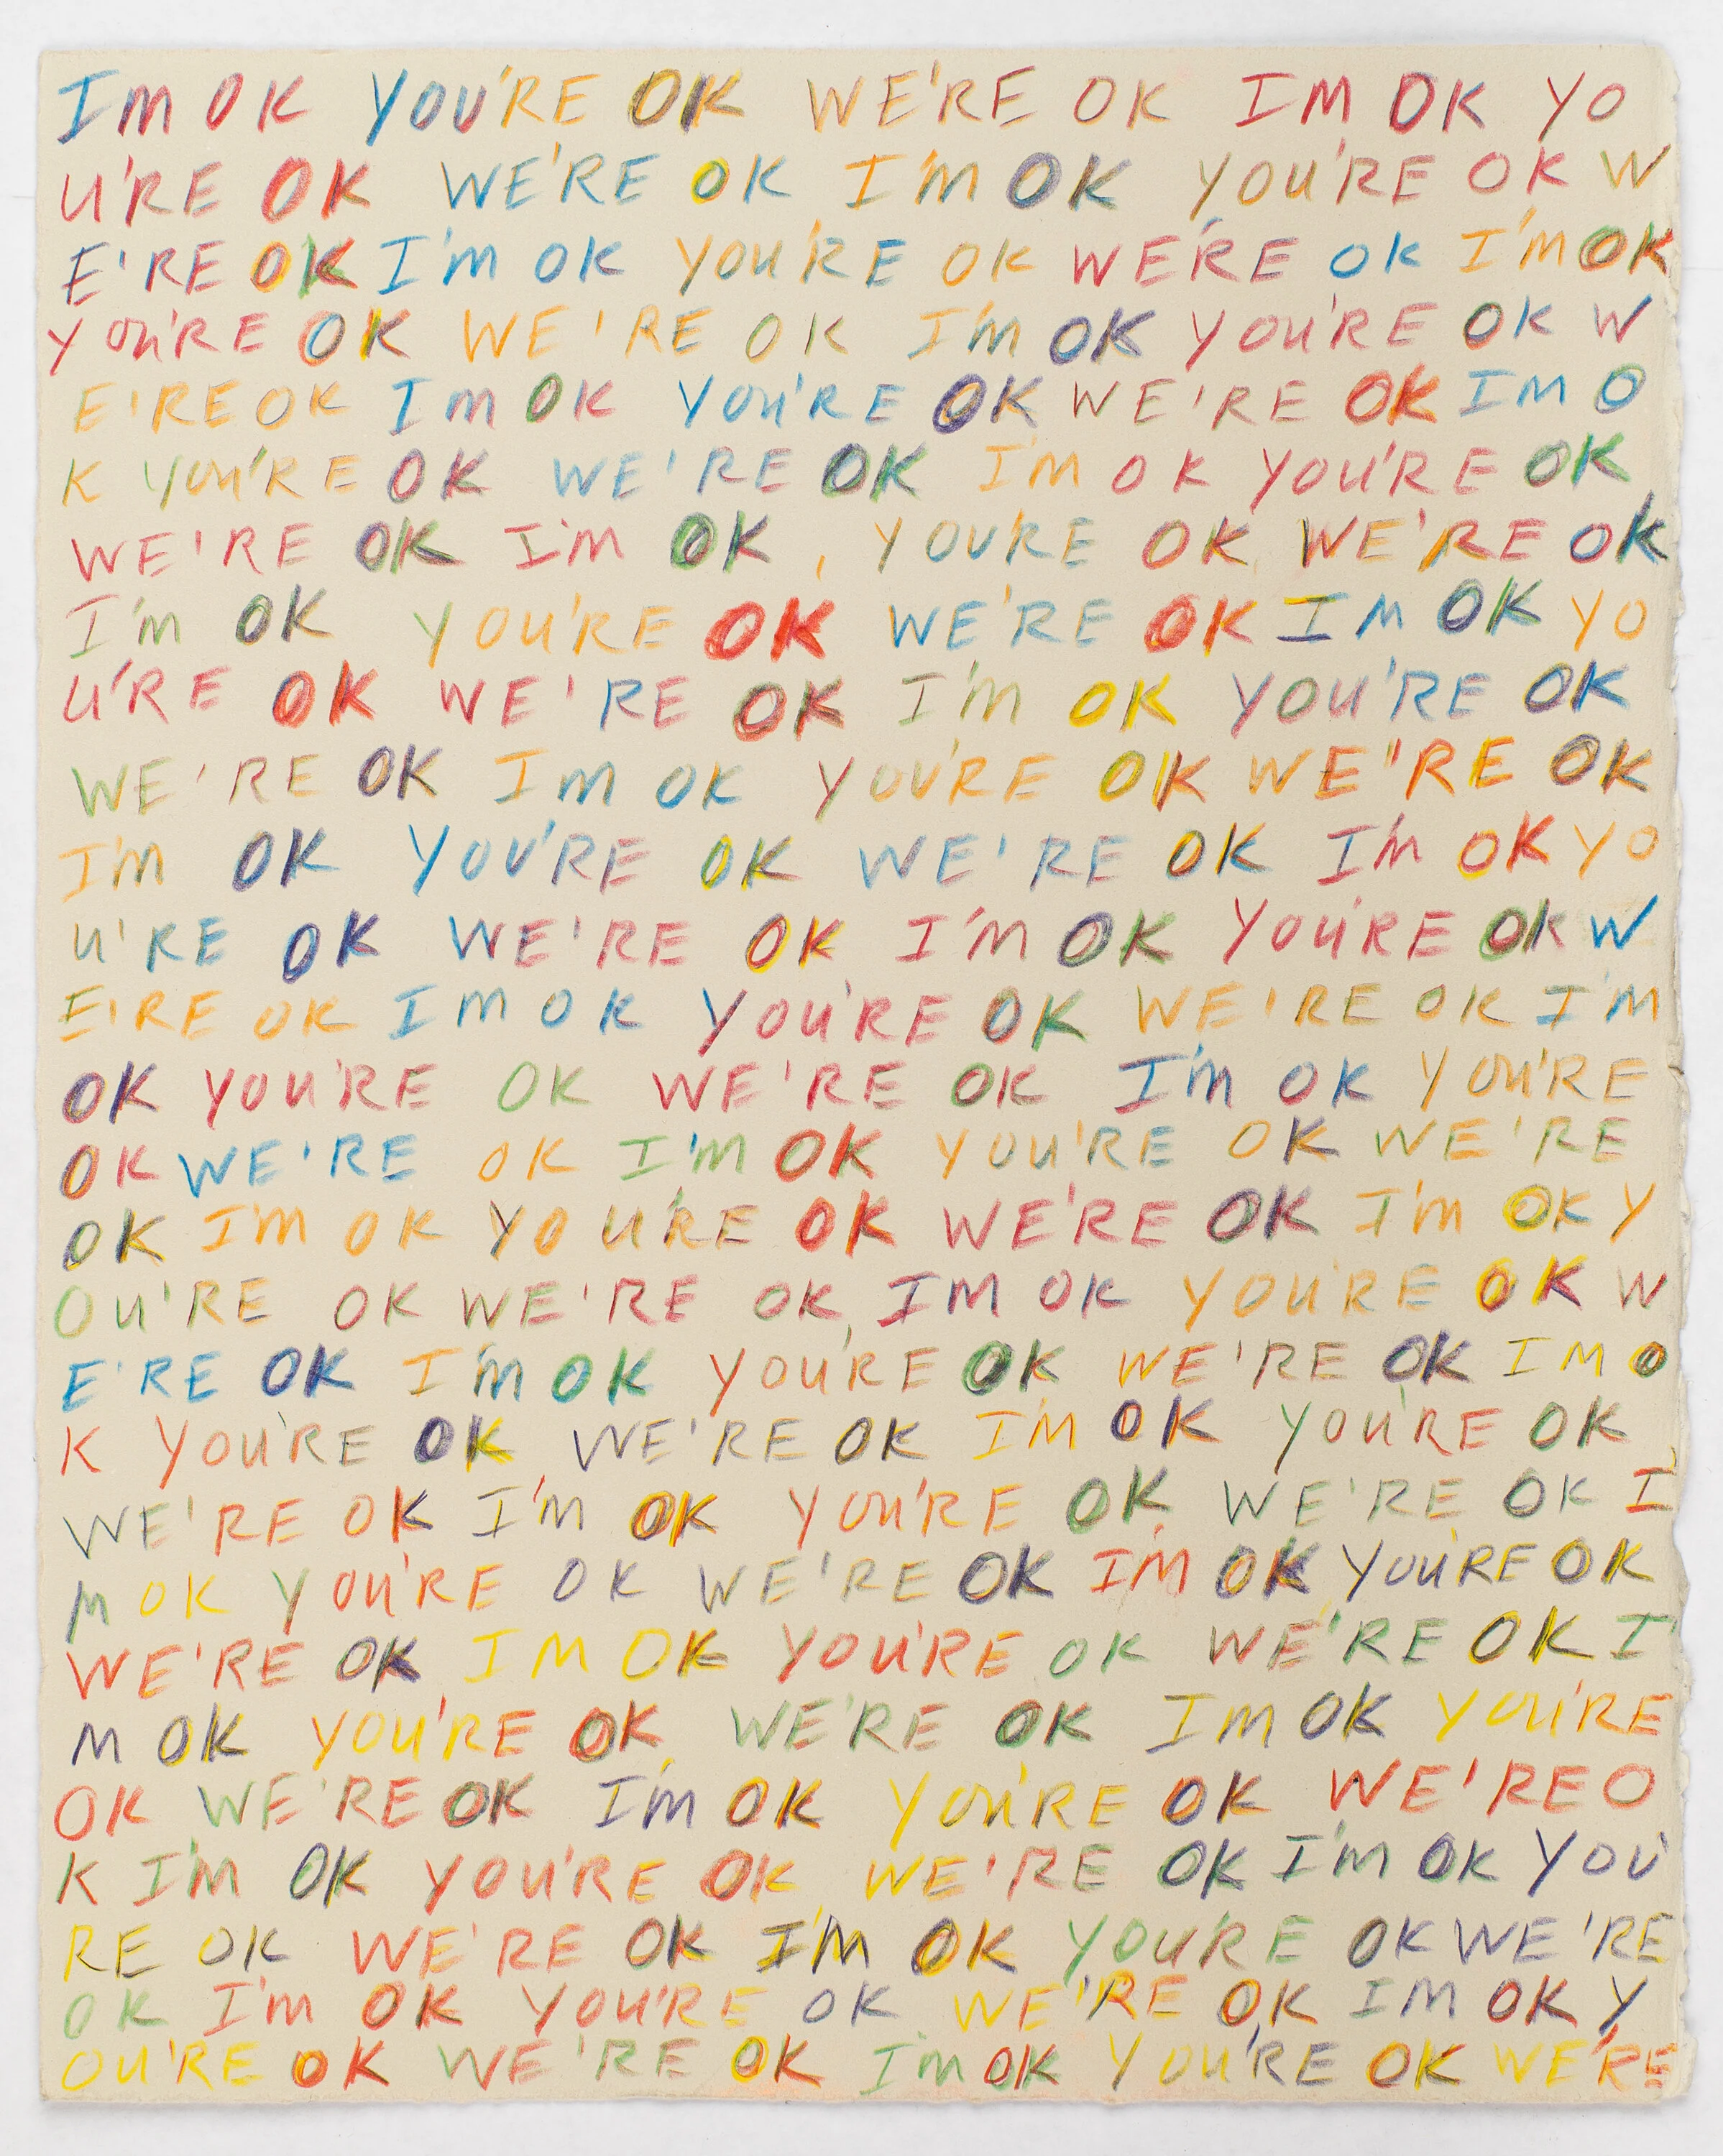 IM OK YOU'RE OK WE'RE OK IM OK YO
U'RE OK WE'RE OK I'M OK YOU'RE OK W
E'RE OK I'M OK YOU'RE OK WE'RE OK I'M OK
YOU'RE OK WE'RE OK I'M OK YOU'RE OK W
E'RE OK IM OK YOU'RE OK WE'RE OK IM O
K YOU'RE OK WE'RE OK I'M OK YOU'RE OK
WE'RE OK I'M OK, YOU'RE OK WE'RE OK
I'M OK YOU'RE OK WE'RE OK IM OK YO
U'RE OK WE'RE OK I'M OK YOU'RE OK
WE'RE OK IM OK YOU'RE OK WE"RE OK
I'M OK YOU'RE OK WE'RE OK I'M OK YO
U'RE OK WE'RE OK I'M OK YOU'RE OK W
E'RE OK IM OK YOU'RE OK WE'RE OK I'M
OK YOU'RE OK WE'RE OK I'M OK YOU'RE
OK WE'RE OK I'M OK YOU'RE OK WE'RE
OK I'M OK YOU'RE OK WE'RE OK I'M OK Y
OU'RE OK WE'RE OK IM OK YOU'RE OK W
E'RE OK I'M OK YOU'RE OK WE'RE OK IM O
K YOU'RE OK WE'RE OK I'M OK YOU'RE OK
WE'RE OK I'M OK YOU'RE OK WE'RE OK I
M OK YOU'RE OK WE'RE OK I'M OK YOU'RE OK
WE'RE OK IM OK YOU'RE OK WE'RE OK I'
M OK YOU'RE OK WE'RE OK IM OK YOU'RE
OK WE'RE OK I'M OK YOU'RE OK WE'RE O
K I'M OK YOU'RE OK WE'RE OK I'M OK YOU'
RE OK WE'RE OK I'M OK YOU'RE OK WE'RE
OK I'M OK YOU'RE OK WE'RE OK IM OK Y
OU'RE OK WE'RE OK I'M OK YOU'RE OK WE'RE